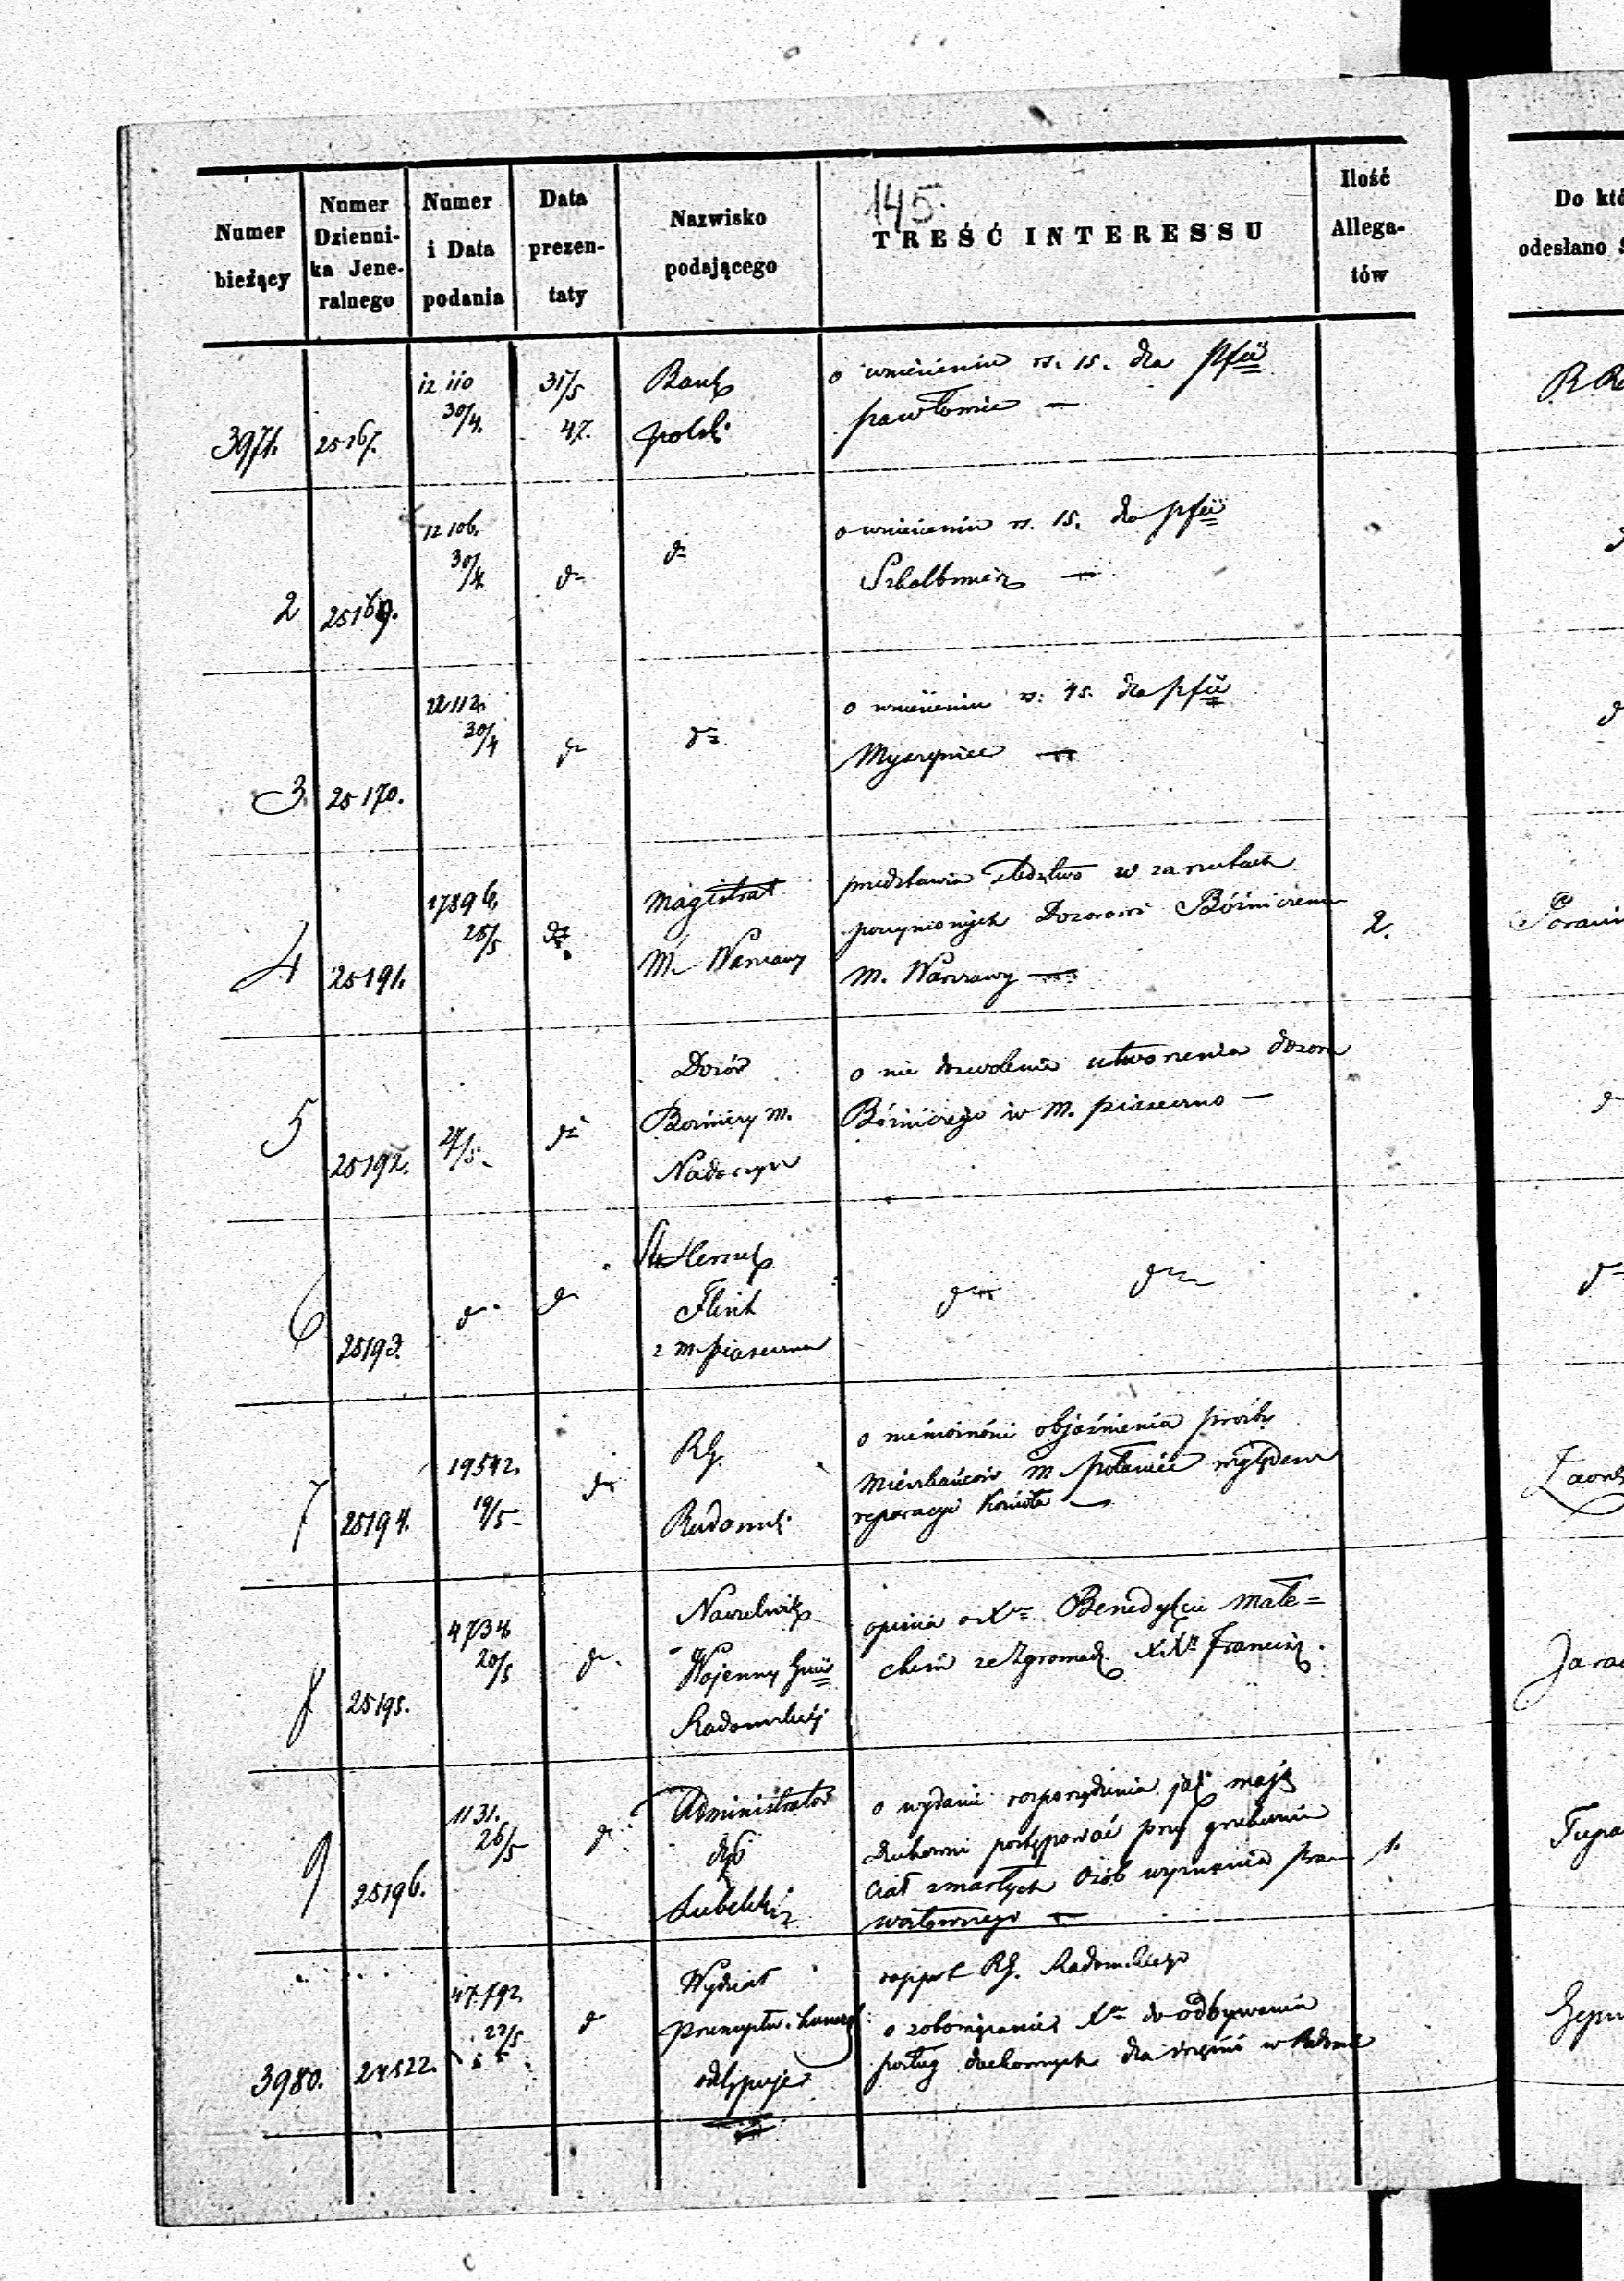 145.
Numer bieżący
Numer Dzienni- ka Jene- ralnego
Numer i Data podania
Data prezen- taty
Nazwisko podającego
TREŚĆ INTERESSU
Ilość Allega- tów
Do któ
odesłano
3971. 25167. 12110 30/4. 31/5 47. Bank polski
o wniesieniu rs. 15. dla
Pawłowic —
2 25169. 12106. 30/4 d° d°
o wniesieniu rs. 15. dla
Szkalbmierz —
3 25170. 12112. 30/4 d° d°
o wniesieniu rs. 45. dla
Myszyniec —
4 25191. 17896. 28/5 d° Magistrat
M. Warszawy
przedstawia śledztwo w zarzutach
poczynionych Dozorowi Bóżniczemu 2.
M. Warszawy —
5 25192. 27/5. d° Dozór
Bożniczy M.
Nadarzyn
o nie dozwolenie utworzenia dozoru
Bóżniczego w M. Piaseczno —
6 25193. d° d° Herszek
Flint
z M. Piaseczna
d° d°
7 25194. 19542. 19/5 d° RG.
Radomski
o objaśnienia prośby
Mieszkańców M Połaniec względem
reparacyi Kościoła —
8 25195. 4734 20/5 d° Naczelnik
Wojenny
Radomskiej
opinia o X Benedykcie Małe=
ze Zgromadz. XX Francisz.
9 25196. 1131. 26/5 d° Administrator
Lubelski
o wydanie rozporządzenia jak mają
duchowni postępować przy grzebaniu
ciał zmarłych osób wyznania pra- 1.
wosławnego —
3980. 24522. 47792. 22/5 d° Wydział
Przemysłu i Kunsz.
odstępuje
rapport RG. Radomskiego
o zobowiązanie X do odbywania
posług duchownych dla więźni w Radomiu